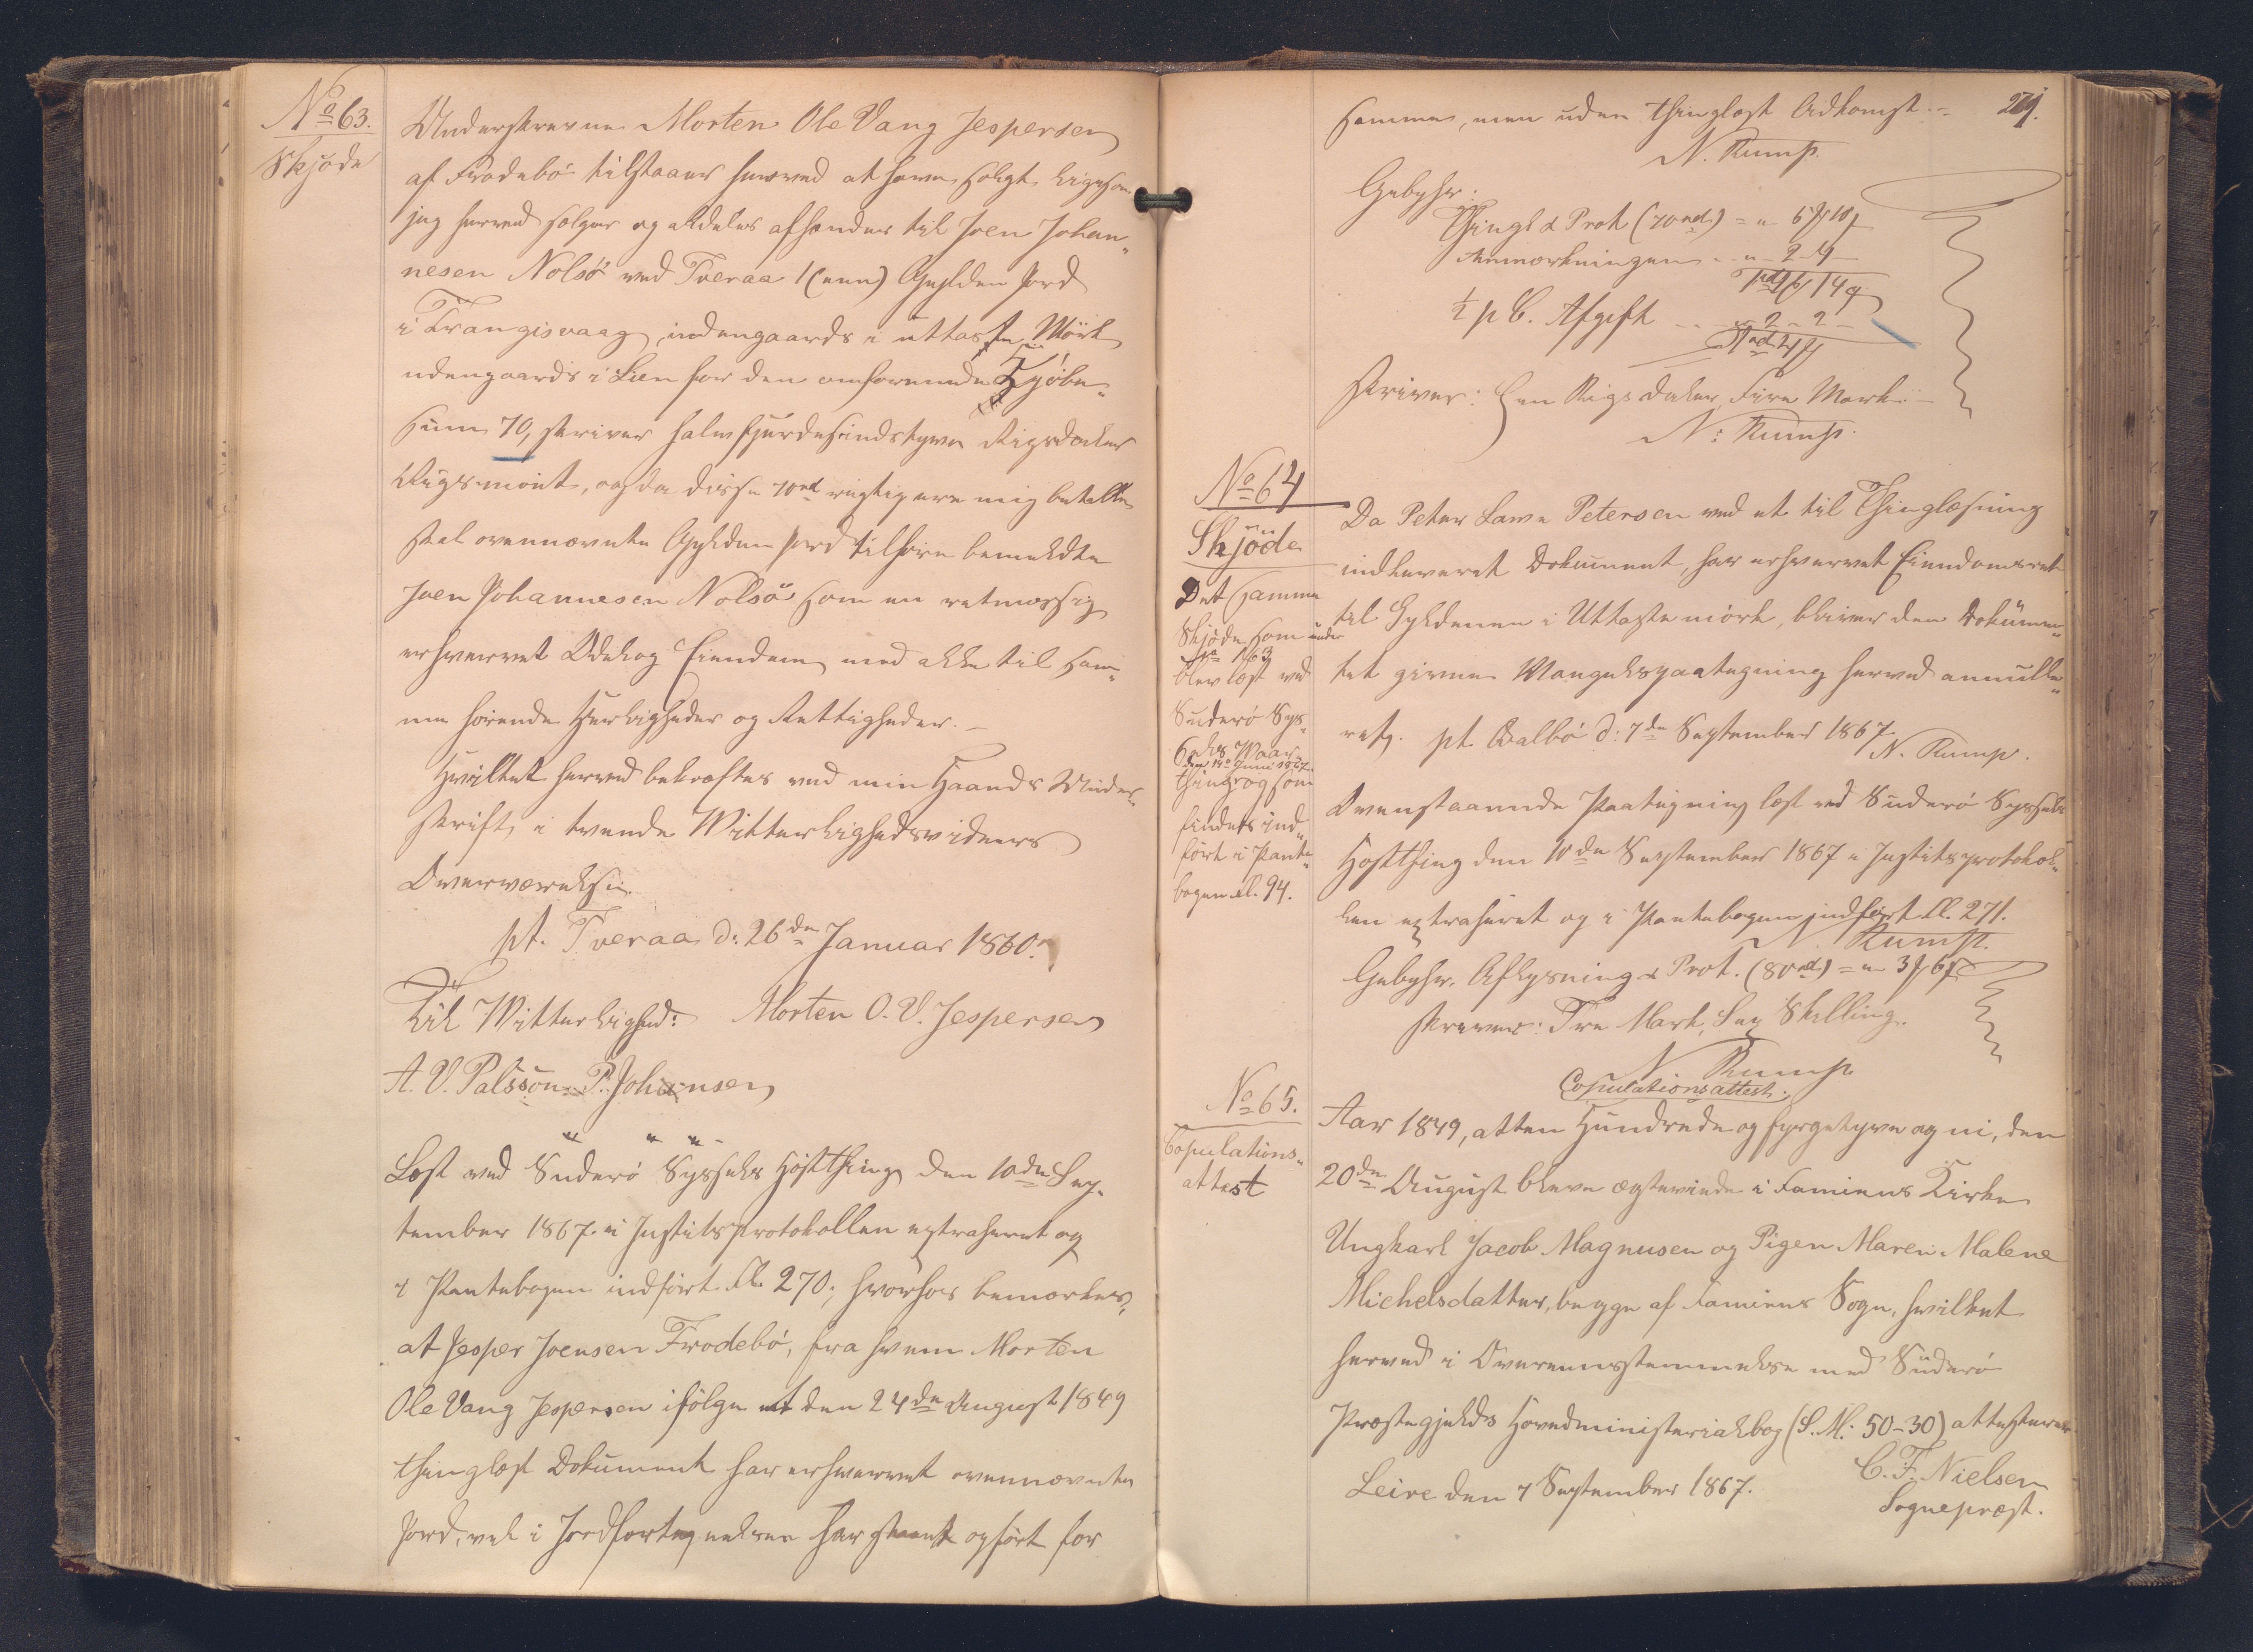 No 63.
Skjøde
Underskrevne Morten Ole Vang Jespersen
af Frodebø tilstaaer herved at have solgt ligesom
jeg herved sælger og aldeles afhænder til Joen Johan-
nesen Nolsø ved Tveraa 1 (een) Gylden Jord
i Trangisvaag, indengaards i uttaste Mörk
udengaards i Lien for den omforenede Kjøbe-
sum 70, skriver halvfjerdesindstyve Rigsdaler
Rigsmönt, og da disse 70 rd rigtig ere mig betalte
skal ovennævnte Gylden Jord tilhøre bemeldte
Joen Johannesen Nolsø som en retmæssig
erhvervet Odel og Eiendom med alle til sam-
me hørende Herligheder og Rettigheder. –
Hvilket herved bekræftes ved min Haands Under-
skrift i tvende Vitterlighedsvidners
Overværelse.
pt. Tveraa d: 26de Januar 1860.
Til Vitterlighed: Morten O. V. Jespersen
A. V. Palsson P. Johansen
Læst ved Suderø Syssels Høstthing den 10de Sep-
tember 1867. i Justitsprotokollen extraheret og
i Pantebogen indført Fl. 270; hvorhos bemærkes,
at Jesper Joensen Frodebø, fra hvem Morten
Ole Vang Jespersen ifølge et den 24de August 1849
thinglæst Dokument har erhvervet ovennævnte
Jord, vel i Jordfortegnelsen har staaet opført for
271.
samme, men uden thinglæst Adkomst. –
N. Rump.
Gebyhr.
Thingl & Prot (70 rd) = " 5 10
Anmærkningen " – 2 – 4
1 rd 14
½ p C. Afgift " – 2 – 2 –
1 rd 4
skriver: Een Rigsdaler Fire Mark. –
N: Rump.
No 64
Skjøde
Det samme
Skjøde som under
No 163
blev læst ved
Suderø Sys-
sels Vaar-
thing og som
findes ind-
ført i Pante-
bogen Fl. 94.
Da Peter Lawe Petersen ved et til Thinglæsning
indleveret Dokument, har erhvervet Eiendomsret
til Gyldenen i Uttaste mörk, bliver den Dokumen-
tet givne Mangelspaategning herved annulle-
ret. pt. Valbø d: 7de September 1867.
N. Rump.
Ovenstaaende Paategning læst ved Suderø Syssels
Høstthing den 10de September 1867 i Justitsprotokol-
len extraheret og i Pantebogen indført Fl. 271.
N. Rump.
Gebyhr. Aflysning & Prot. (80 rd) = " 3 6
skriver: Tre Mark, Sex Skilling.
N Rump
No 65.
Copulations-
attest
Copulationsattest.
Aar 1849, atten Hundrede og fyrgetyve og ni, den
20de August bleve ægteviede i Famiens Kirke
Ungkarl Jacob Magnusen og Pigen Maren Malene
Michelsdatter, begge af Famiens Sogn, hvilket
herved i Overeensstemmelse med Suderø
Præstegjelds Hovedministerialbog (S. M. 50-30) attesteres
Leire den 7 September 1867.
C. F. Nielsen
Sognepræst.